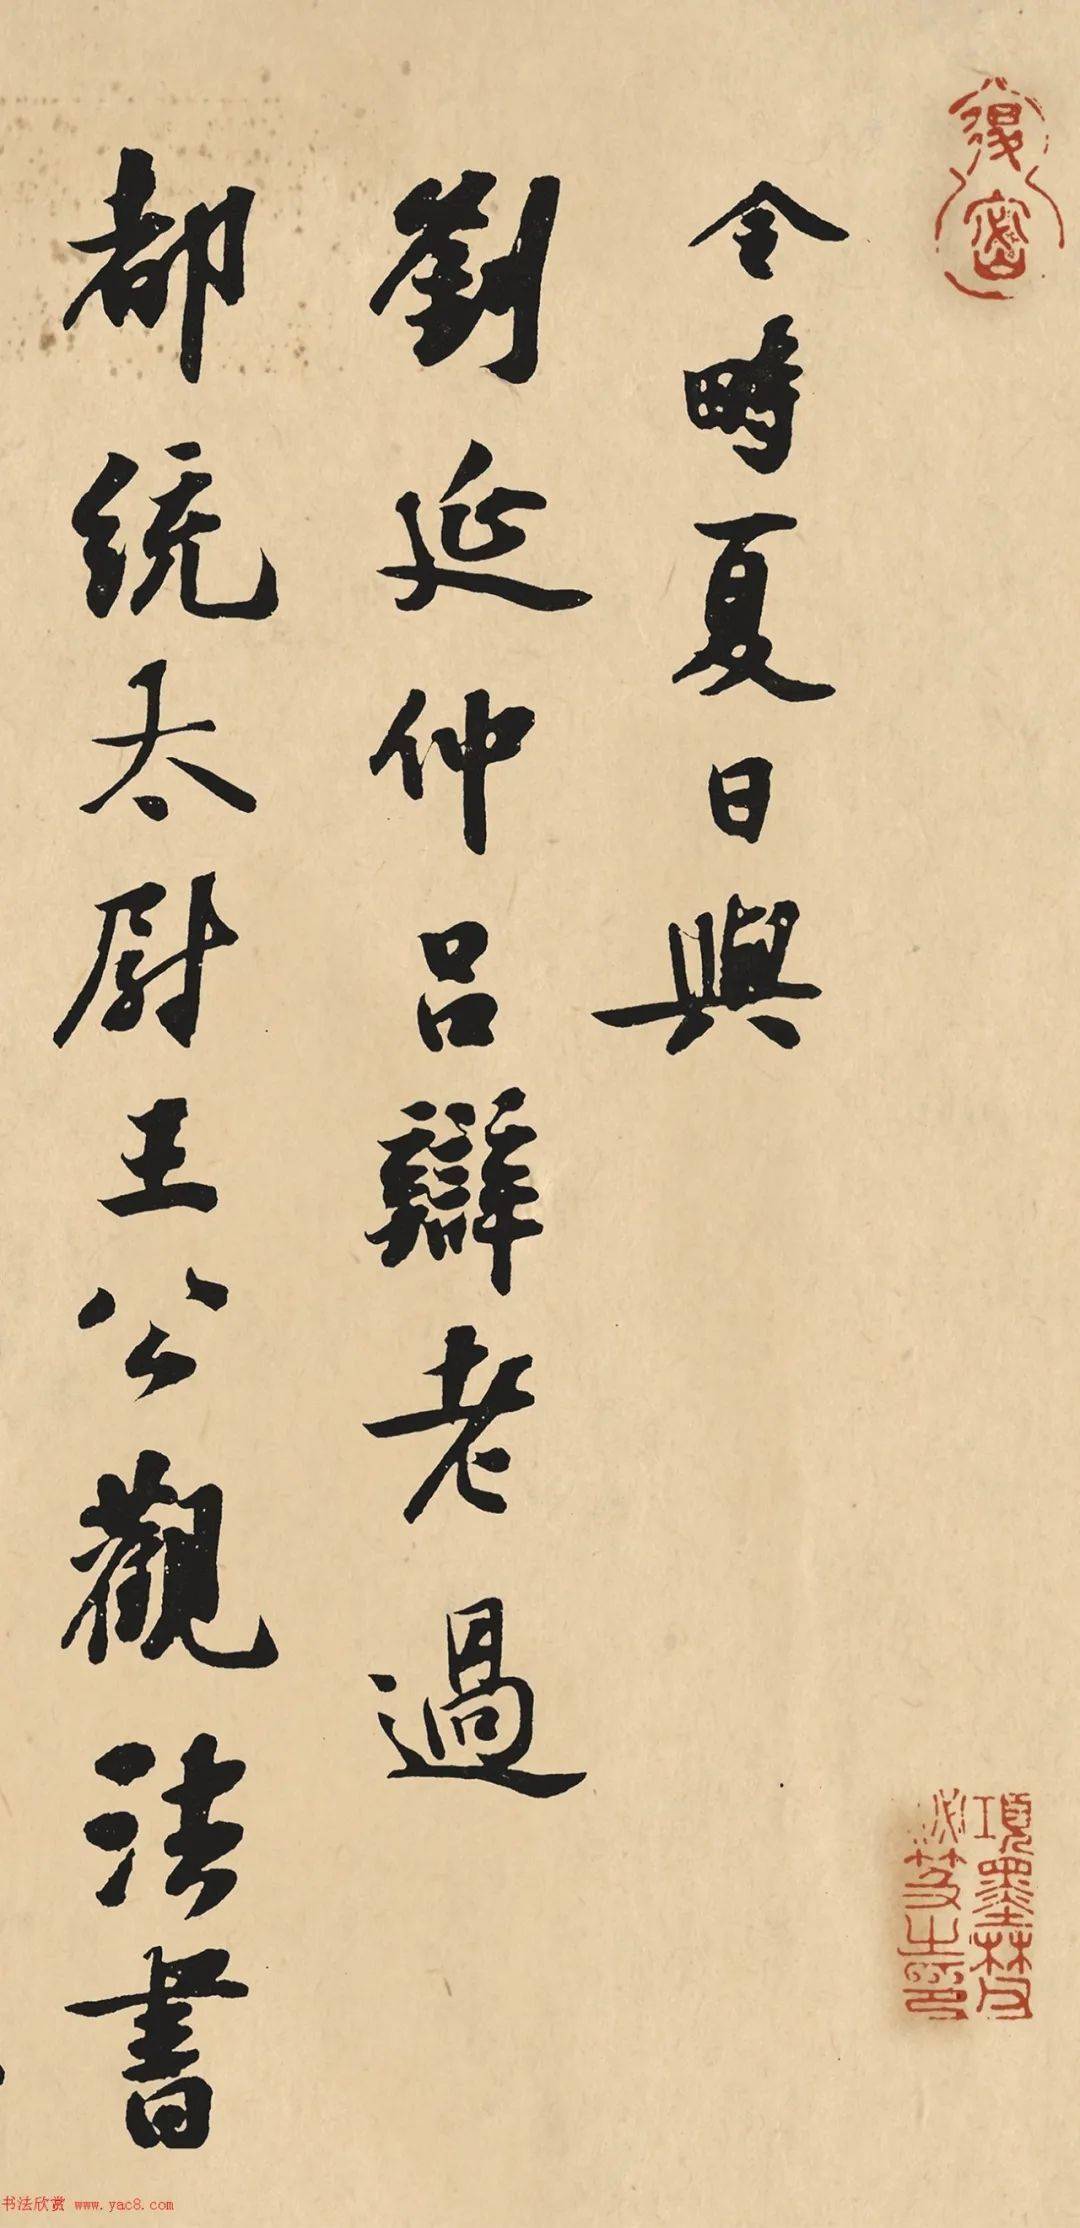 令時夏日與
劉延仲呂辯老過
都統太尉王公觀法書
項墨林父
祕笈之印
书法欣赏 www.yac8.com